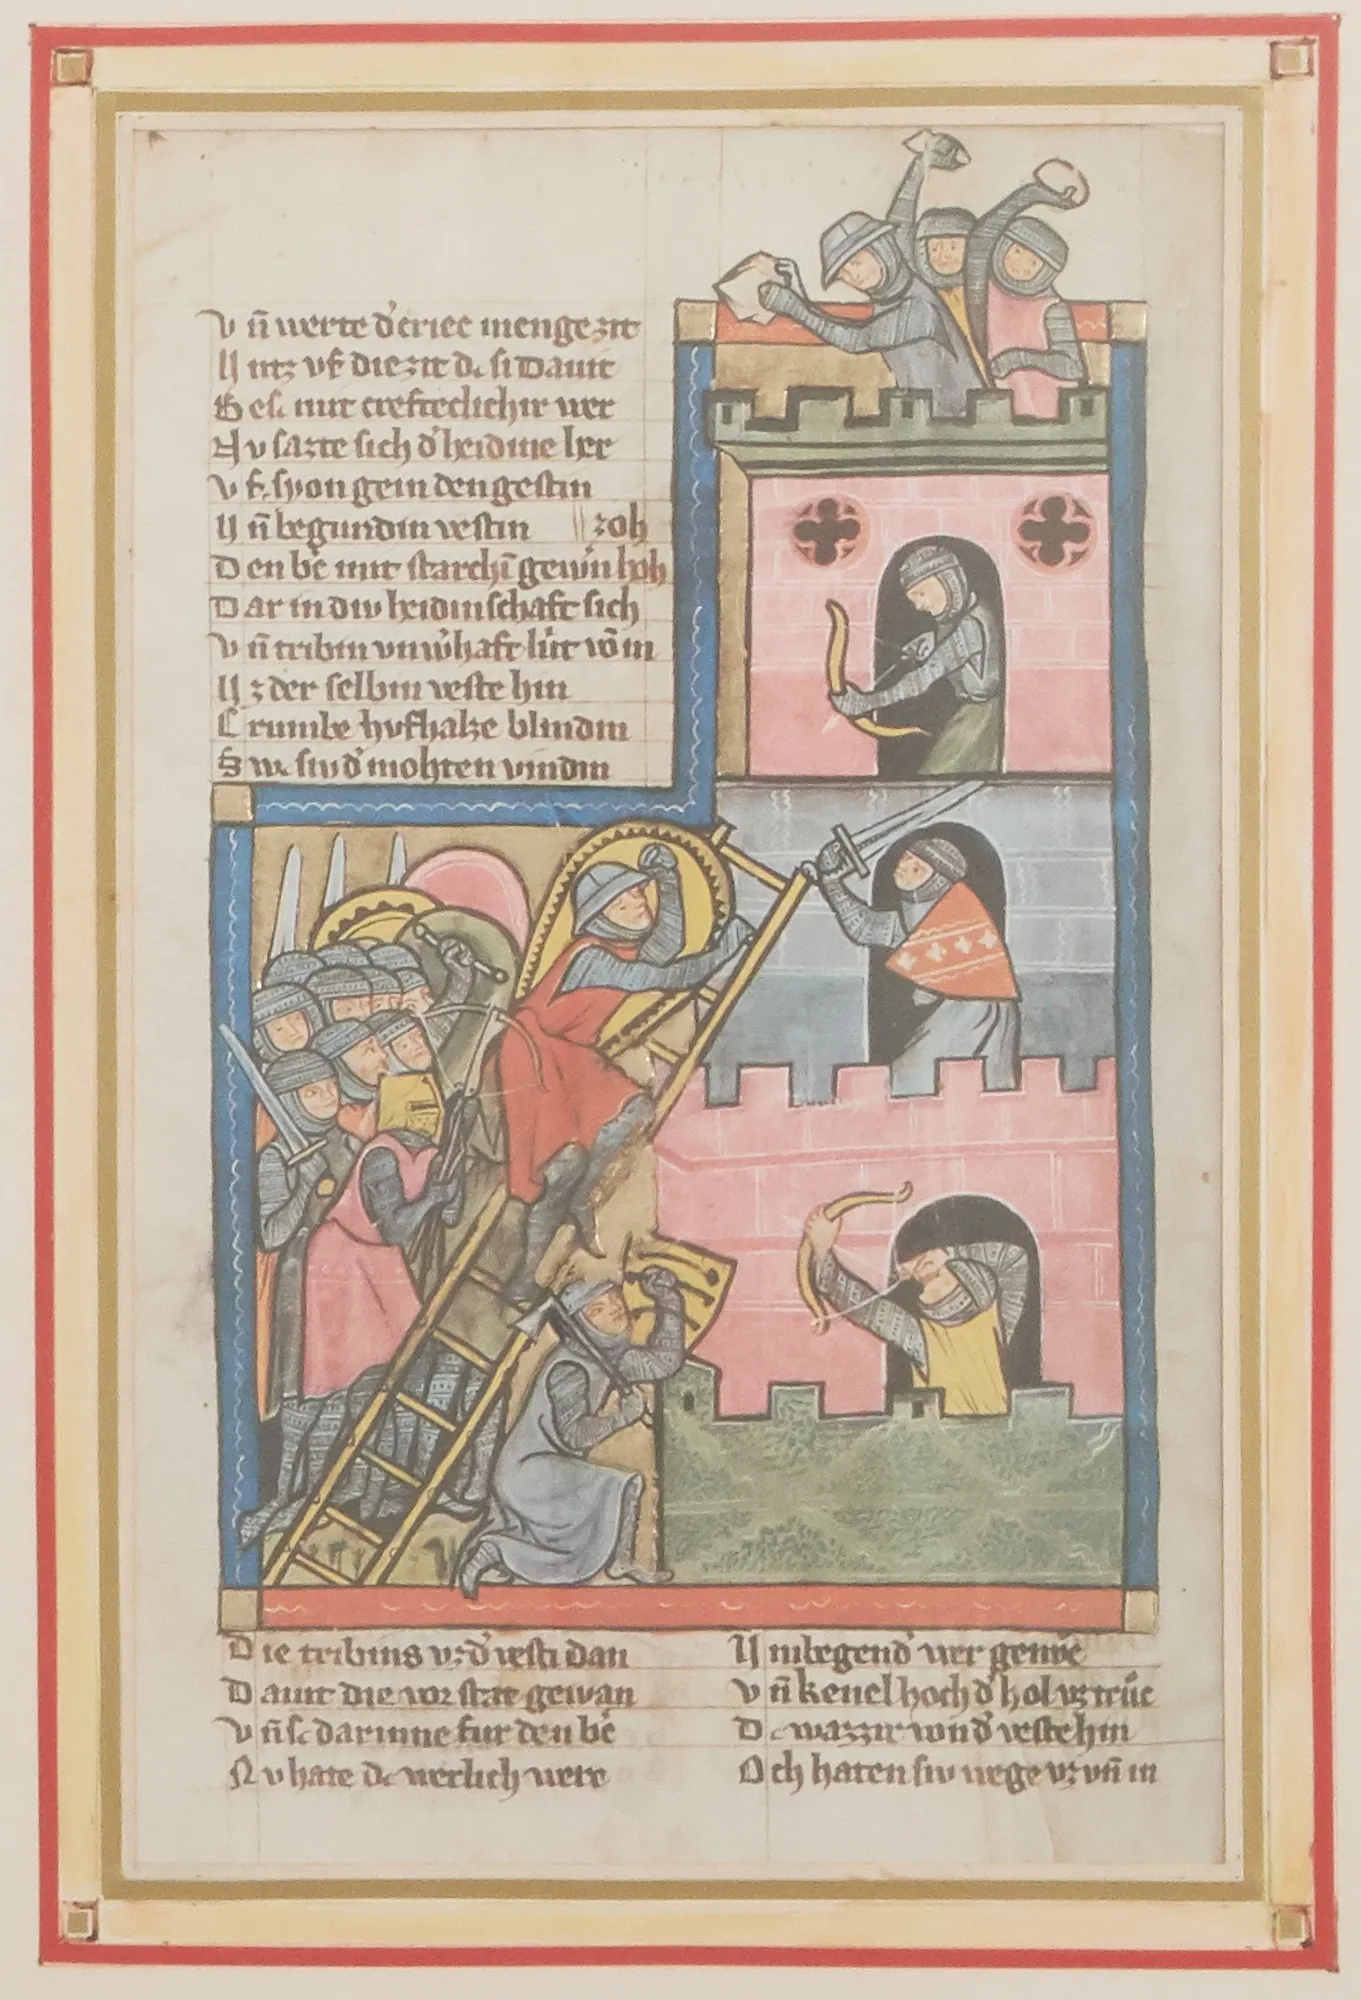 Vn̄ werte d'criec menge zit
Untz vf die zit dc si Dauit
Besc mit crefteclichir wer
Nv sazte sich d' heidine her
Vf syon gein den gestin
Un̄ begundin vestin zoh
Den bc mit starchī gewin hoh
Dar in div heidinschaft sich
Vn̄ tribin vnw'haft lút vō in
Uz der selbin veste hin
Crumbe hvfhalze blindin
Swc siv d' mohten vindin
Die tribins vz d' vesti dan
Dauit die vor stat gewan
Vn̄ sc darinne fur den bc
Nv hate dc werlich werc
Umbegend' wer genvc
Vn̄ kenel hoch d' hol vz trúc
Dc wazzir von d' veste hin
Och haten siv wege vz vn̄ in